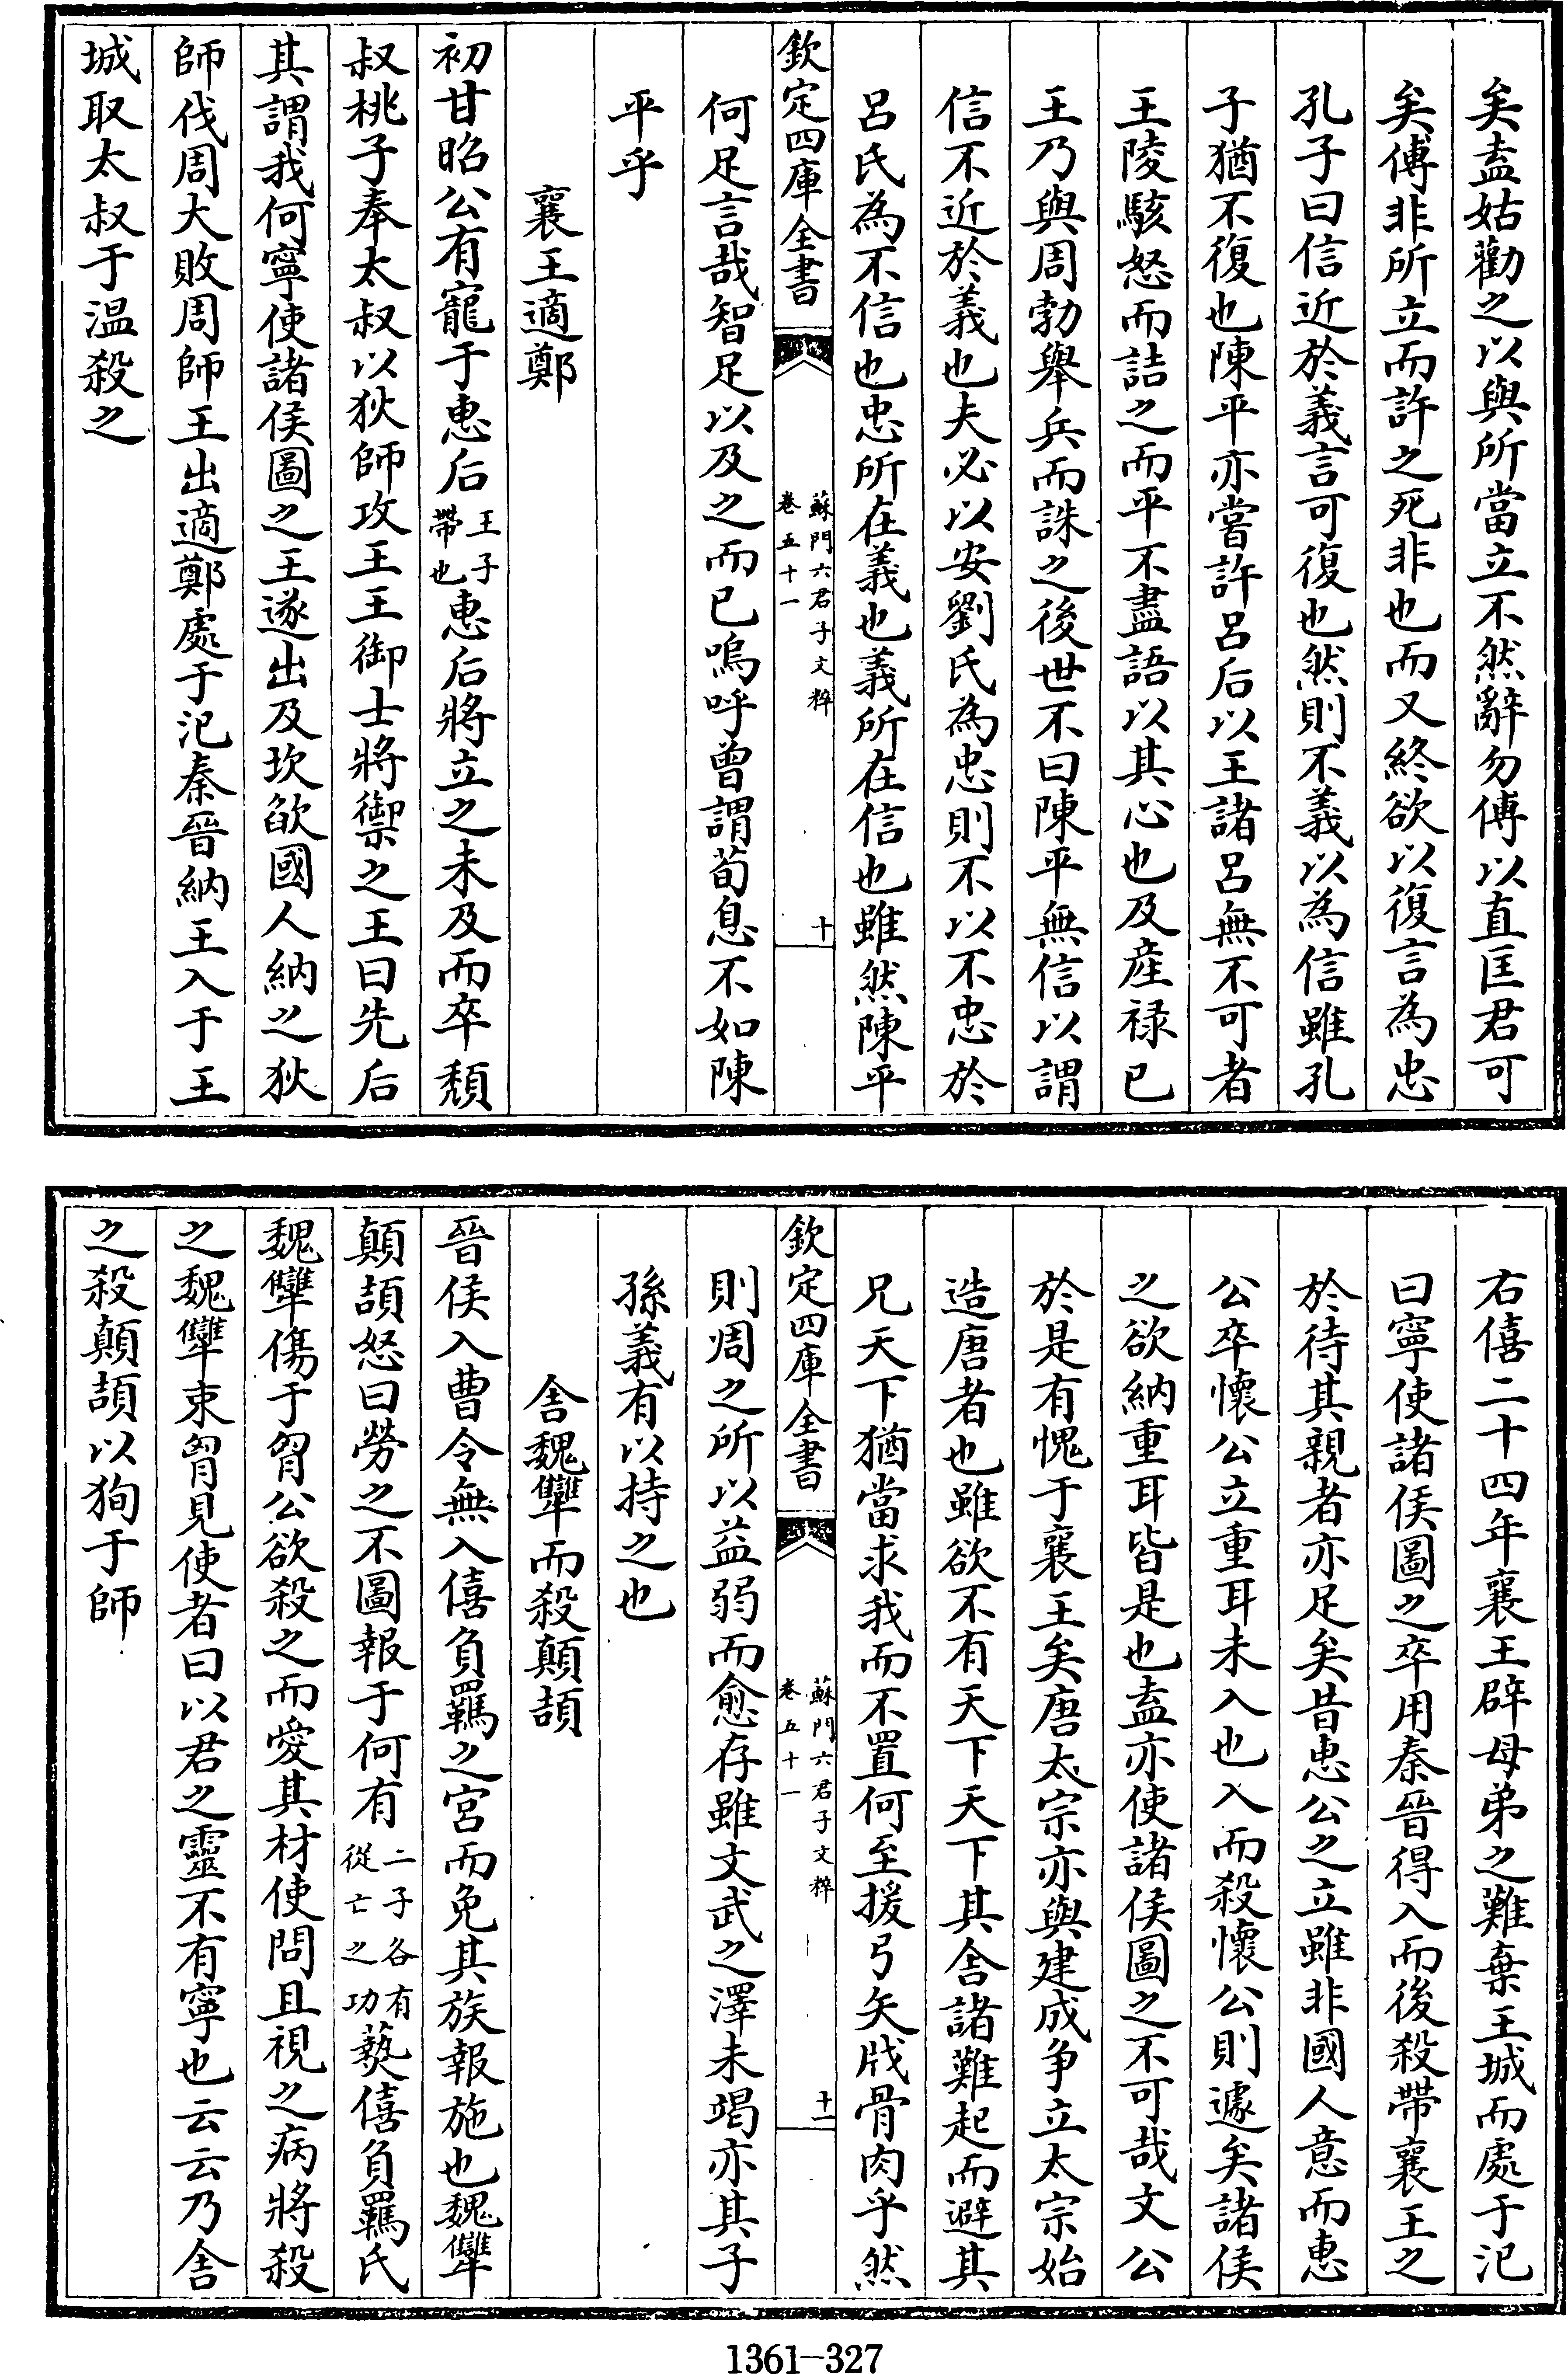 矣盍姑勸之以與所當立不然辭勿傅以直匡君可
矣傅非所立而許之死非也而又終欲以復言為忠
孔子曰信近於義言可復也然則不義以為信雖孔
子猶不復也陳平亦嘗許呂后以王諸呂無不可者
王陵駭怒而詰之而平不盡語以其心也及產禄已
王乃與周勃舉兵而誅之後世不曰陳平無信以謂
信不近於義也夫必以安劉氏為忠則不以不忠於
呂氏為不信也忠所在義也義所在信也雖然陳平
欽定四庫全書
蘇門六君子文粹
卷五十一
十
何足言哉智足以及之而已嗚呼曾謂荀息不如陳
平乎
襄王適鄭
初甘昭公有寵于惠后王子帶也惠后將立之未及而卒頽
叔桃子奉太叔以狄師攻王王御士將禦之王曰先后
其謂我何寧使諸侯圖之王遂出及坎欿國人納之狄
師伐周大敗周師王出適鄭處于汜秦晉納王入于王
城取太叔于温殺之
右僖二十四年襄王辟母弟之難棄王城而處于汜
曰寧使諸侯圖之卒用秦晉得入而後殺帶襄王之
於待其親者亦足矣昔惠公之立雖非國人意而惠
公卒懷公立重耳未入也入而殺懷公則遽矣諸侯
之欲納重耳皆是也盍亦使諸侯圖之不可哉文公
於是有愧于襄王矣唐太宗亦與建成争立太宗始
造唐者也雖欲不有天下天下其舎諸難起而避其
兄天下猶當求我而不置何至援弓矢戕骨肉乎然
欽定四庫全書
蘇門六君子文粹
卷五十一
十一
則周之所以益弱而愈存雖文武之澤未竭亦其子
孫義有以持之也
舎魏犨而殺顛頡
晉侯入曹令無入僖負羈之宮而免其族報施也魏犨
顛頡怒曰勞之不圖報于何有二子各有從亡之功爇僖負羈氏
魏犨傷于胷公欲殺之而愛其材使問且視之病將殺
之魏犨束胷見使者曰以君之靈不有寧也云云乃舎
之殺顛頡以狥于師
1361-327